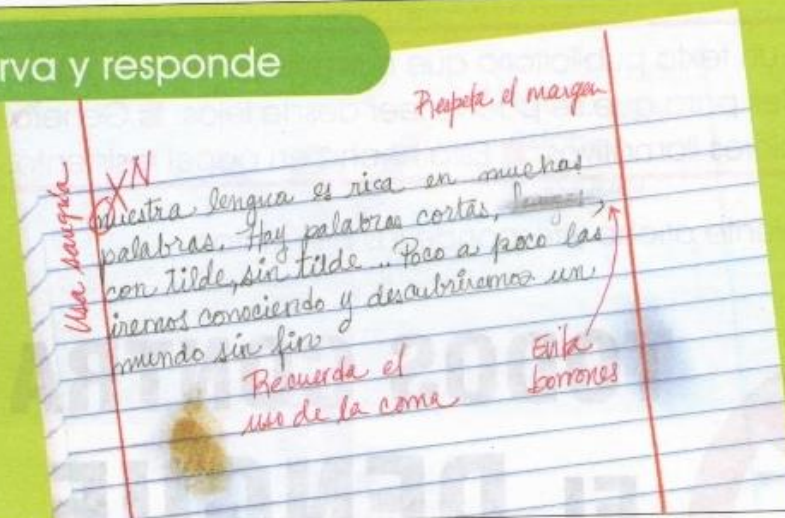 rva y responde
Respeta el margen
Usa sangría
XN
nuestra lengua es rica en muchas
palabras. Hay palabras cortas, largas,
con tilde, sin tilde... Poco a poco las
iremos conociendo y descubriremos un
mundo sin fin
Recuerda el
uso de la coma
Evita
borrones